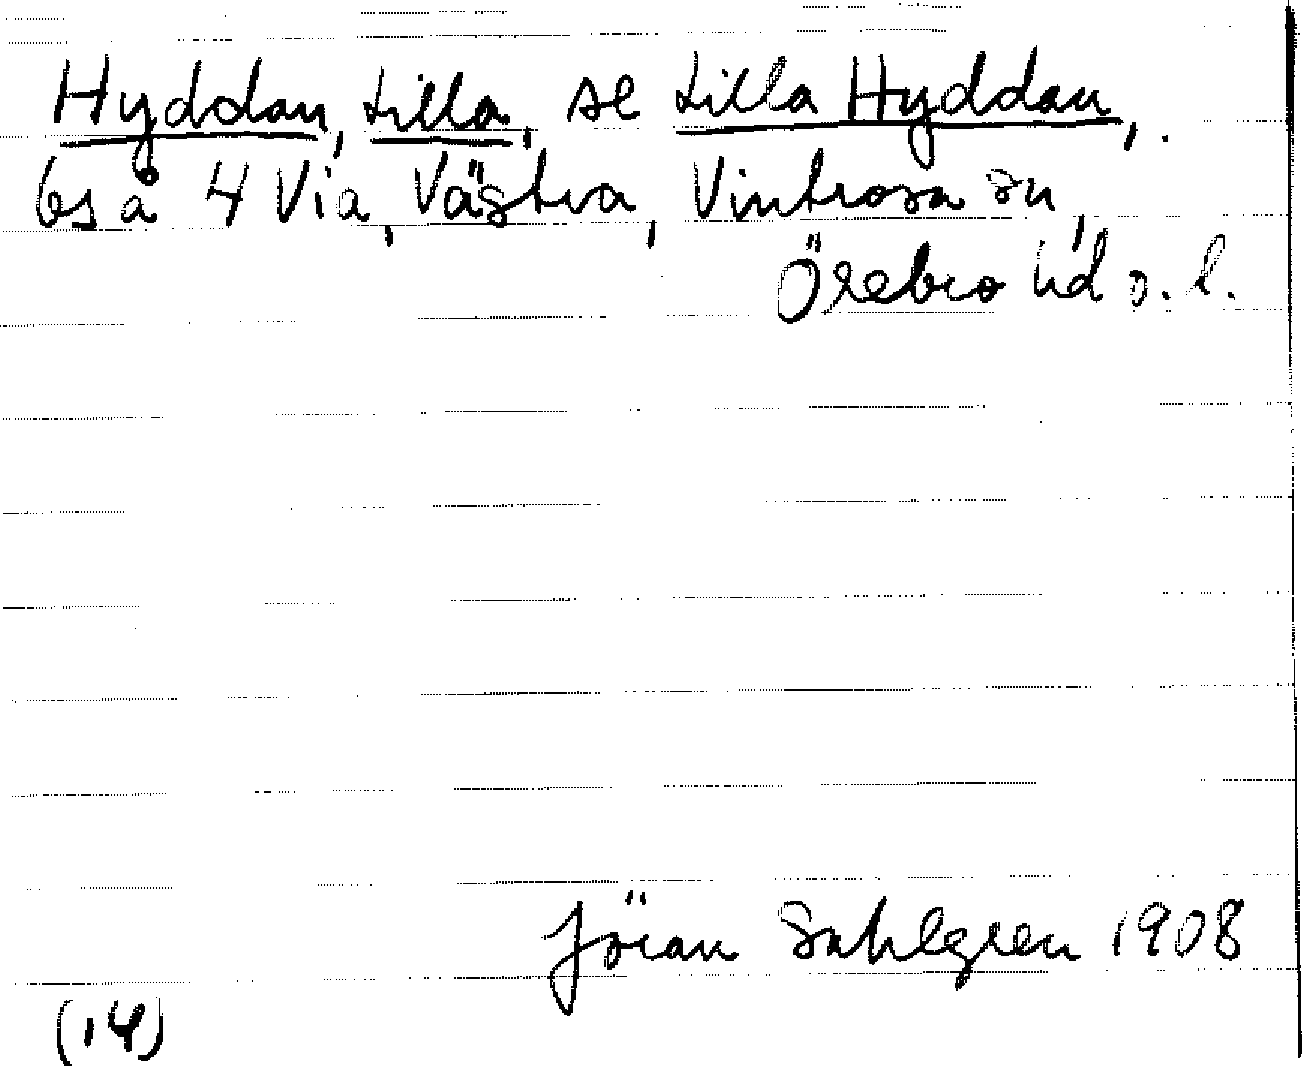 Hyddan, Lilla, se Lilla Hyddan,.
bs å 4 Via, Västra, Vintrosa sn,
Örebro hd o. l.
Jöran Sahlgren 1908
(14)